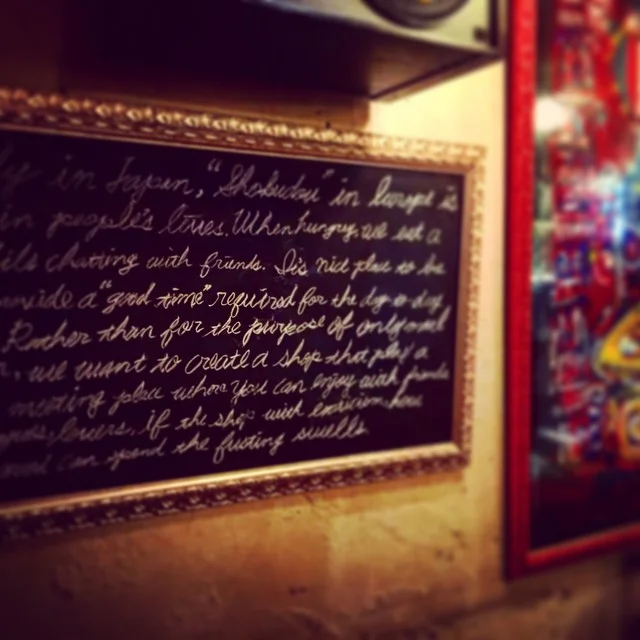 in Japan, "Shokudou" in Europe is
in people's lives. When hungry, we eat a
chatting with friends. It's nice place to be
a "good time" required for the day-to-day.
Rather than for the purpose of only meal
, we want to create a shop that play a
meeting place where you can enjoy with friends
lovers, if the shop with
can spend the